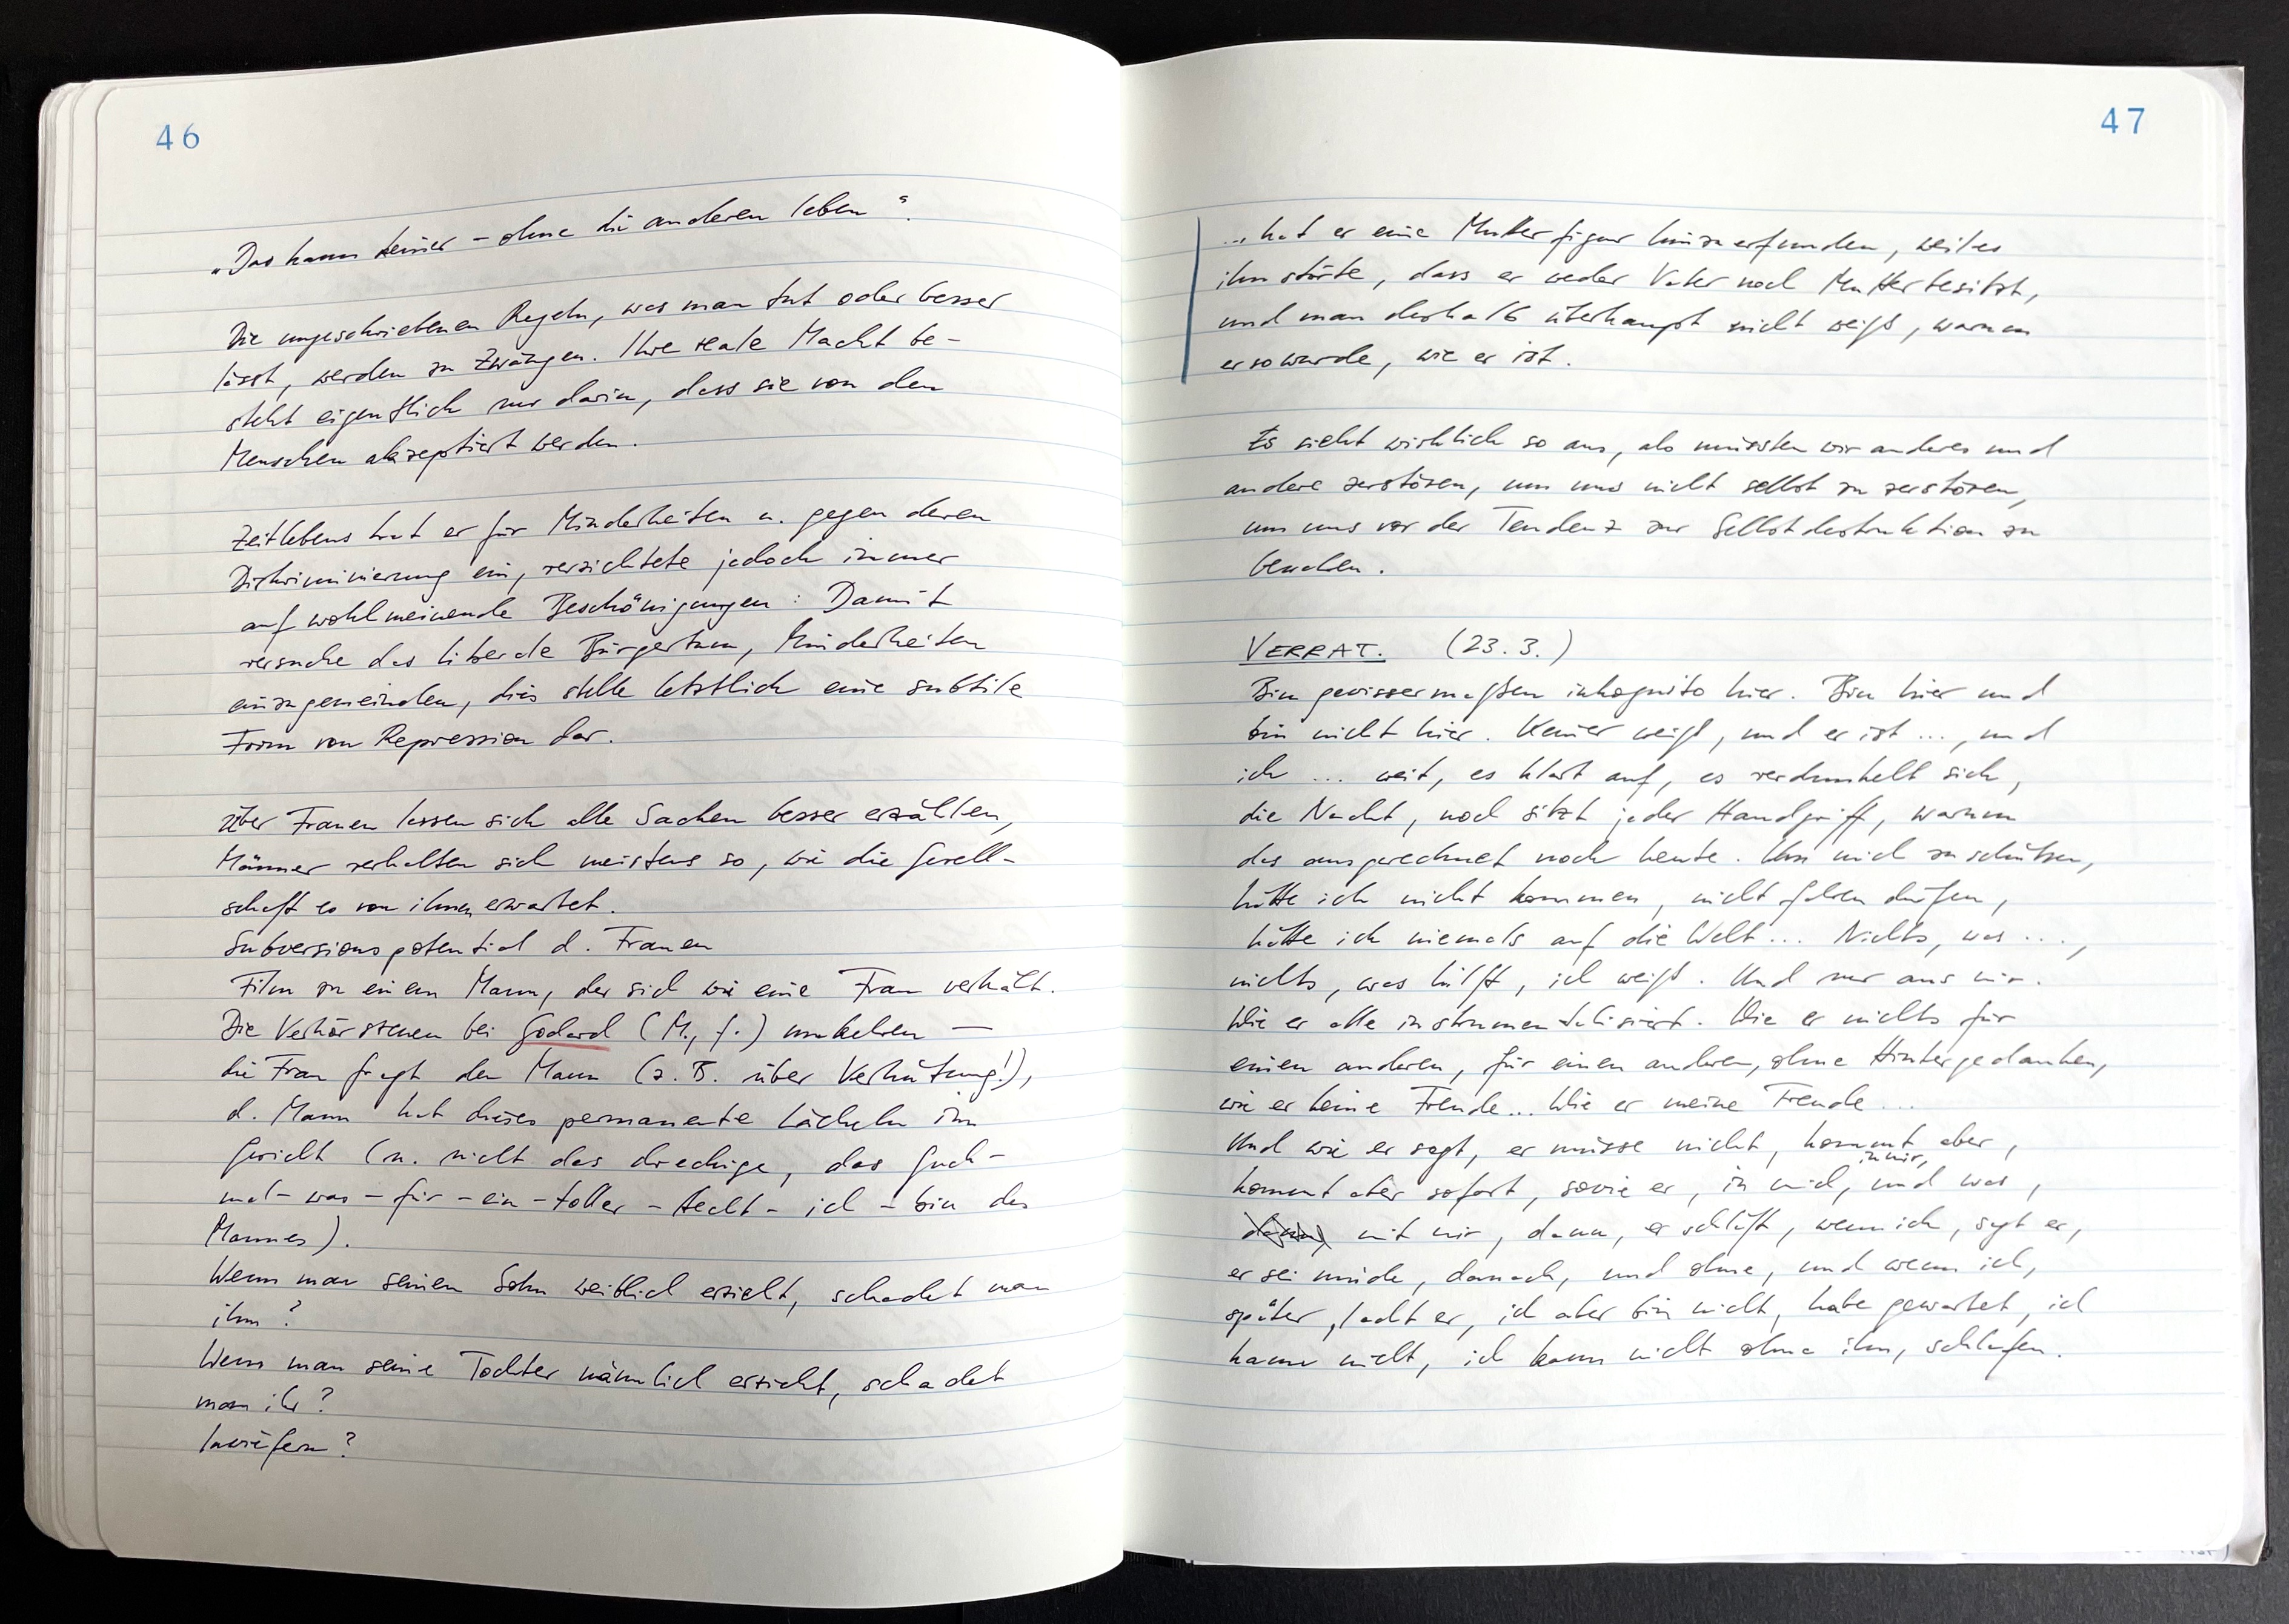 46
„Das kann keiner – ohne die anderen leben“.
Die ungeschriebenen Regeln, was man tut oder besser
lässt, werden zu Zwängen. Ihre reale Macht be-
steht eigentlich nur darin, dass sie von den
Menschen akzeptiert werden.
Zeitlebens trat er für Minderheiten u. gegen deren
Diskriminierung ein, verzichtete jedoch immer
auf wohlmeinende Beschönigungen: Damit
versuche das liberale Bürgertum, Minderheiten
einzugemeinden, dies stelle letztlich eine subtile
Form von Repression dar.
Über Frauen lassen sich alle Sachen besser erzählen,
Männer verhalten sich meistens so, wie die Gesell-
schaft es von ihnen erwartet.
Subversionspotential d. Frauen
Film zu einem Mann, der sich wie eine Frau verhält.
Die Verhörszenen bei Godard (M., f.) umkehren —
die Frau fragt den Mann (z. B. über Verhütung!),
d. Mann hat dieses permanente Lächeln im
Gesicht (u. nicht das dreckige, das Guck-
mal-was-für-ein-toller-Hecht-ich-bin des
Mannes).
Wenn man seinen Sohn weiblich erzieht, schadet man
ihm?
Wenn man seine Tochter männlich erzieht, schadet
man ihr?
Inwiefern?
47
... hat er eine Mutterfigur hinzuerfunden, weil es
ihn störte, dass er weder Vater noch Mutter besitzt,
und man deshalb überhaupt nicht weiß, warum
er so wurde, wie er ist.
Es sieht wirklich so aus, als müssten wir anderes und
andere zerstören, um uns nicht selbst zu zerstören,
um uns vor der Tendenz zur Selbstdestruktion zu
bewahren.
VERRAT. (23.3.)
Bin gewissermaßen inkognito hier. Bin hier und
bin nicht hier. Keiner weiß, und er ist ..., und
ich ... weit, es klart auf, es verdunkelt sich,
die Nacht, noch sitzt jeder Handgriff, warum
das ausgerechnet noch heute. Um mich zu schützen,
hätte ich nicht kommen, nicht fahren dürfen,
hätte ich niemals auf die Welt ... Nichts, was ...,
nichts, was hilft, ich weiß. Und nur aus mir.
Wie er alle instrumentalisiert. Wie er nichts für
einen anderen, für einen anderen, ohne Hintergedanken,
wie er keine Freude... Wie er meine Freude ...
Und wie er sagt, er müsse nicht, kommt aber,
kommt aber sofort, sowie er, in mich, in mir, und was,
dann, mit mir, dann, er schläft, wenn ich, sagt er,
er sei müde, danach, und ohne, und wenn ich,
später, lacht er, ich aber bin nicht, habe gewartet, ich
kann nicht, ich kann nicht ohne ihn, schlafen.